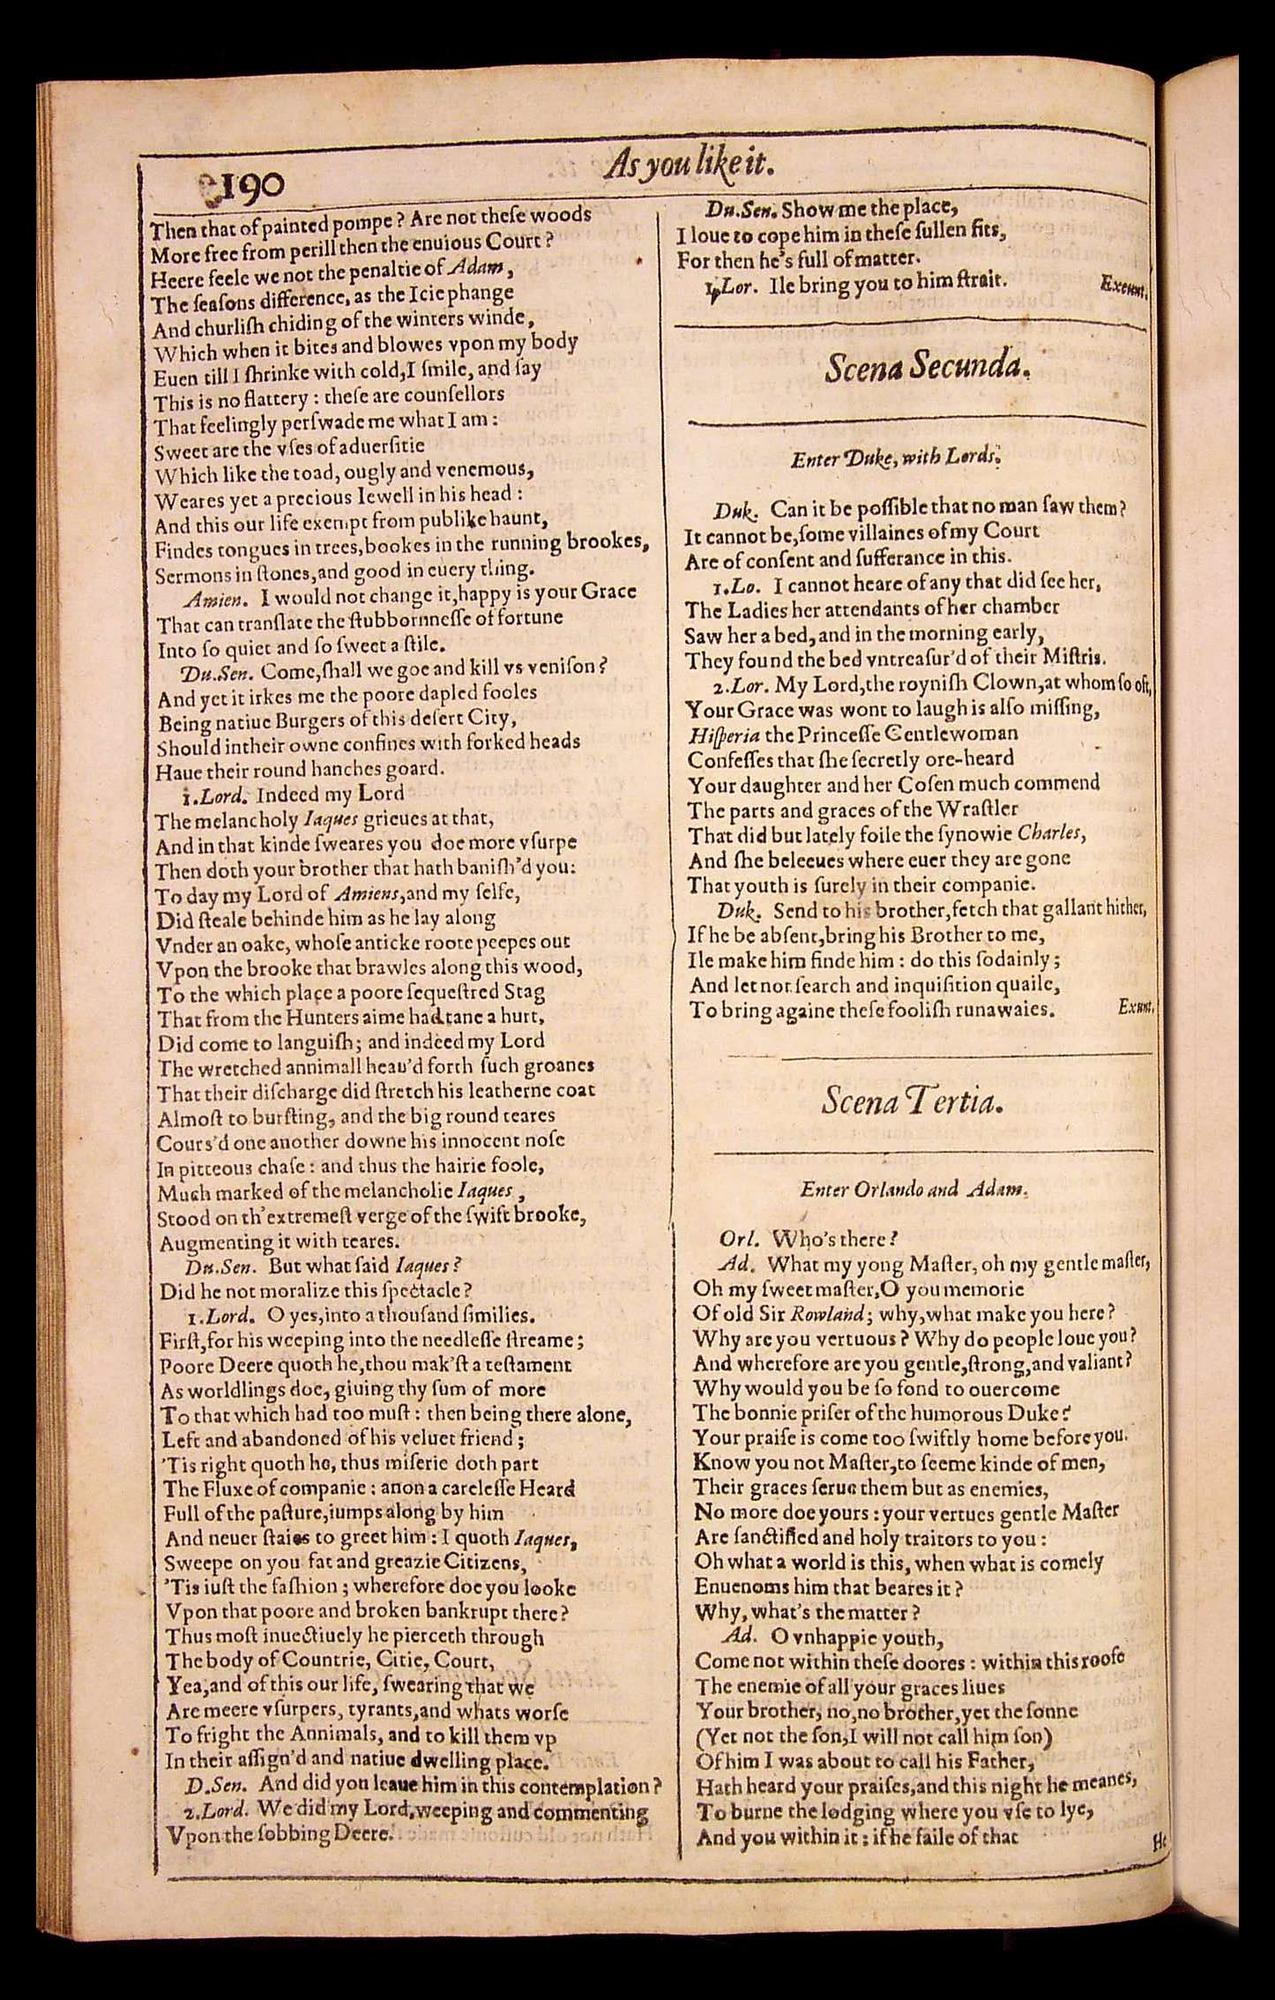 190
As you like it.
Then that of painted pompe? Are not theſe woods
More free from perill then the enuious Court?
Heere feele we not the penaltie of Adam,
The ſeaſons difference, as the Icie phange
And churliſh chiding of the winters winde,
Which when it bites and blowes vpon my body
Euen till I ſhrinke with cold, I ſmile, and ſay
This is no flattery: theſe are counſellors
That feelingly perſwade me what I am:
Sweet are the vſes of aduerſitie
Which like the toad, ougly and venemous,
Weares yet a precious Iewell in his head:
And this our life exempt from publike haunt,
Findes tongues in trees, bookes in the running brookes,
Sermons in ſtones, and good in euery thing.
Amien. I would not change it, happy is your Grace
That can tranſlate the ſtubbornneſſe of fortune
Into ſo quiet and ſo ſweet a ſtile.
Du.Sen. Come, ſhall we goe and kill vs veniſon?
And yet it irkes me the poore dapled fooles
Being natiue Burgers of this deſert City,
Should intheir owne confines with forked heads
Haue their round hanches goard.
1.Lord. Indeed my Lord
The melancholy Iaques grieues at that,
And in that kinde ſweares you doe more vſurpe
Then doth your brother that hath baniſh'd you:
To day my Lord of Amiens, and my ſelfe,
Did ſteale behinde him as he lay along
Vnder an oake, whoſe anticke roote peepes out
Vpon the brooke that brawles along this wood,
To the which place a poore ſequeſtred Stag
That from the Hunters aime had tane a hurt,
Did come to languiſh; and indeed my Lord
The wretched annimall heau'd forth ſuch groanes
That their diſcharge did ſtretch his leatherne coat
Almoſt to burſting, and the big round teares
Cours'd one another downe his innocent noſe
In pitteous chaſe: and thus the hairie foole,
Much marked of the melancholie Iaques,
Stood on th'extremeſt verge of the ſwift brooke,
Augmenting it with teares.
Du.Sen. But what ſaid Iaques?
Did he not moralize this ſpectacle?
1.Lord. O yes, into a thouſand ſimilies.
Firſt, for his weeping into the needleſſe ſtreame;
Poore Deere quoth he, thou mak'ſt a teſtament
As worldlings doe, giuing thy ſum of more
To that which had too muſt: then being there alone,
Left and abandoned of his veluet friend;
'Tis right quoth he, thus miſerie doth part
The Fluxe of companie: anon a careleſſe Heard
Full of the paſture, iumps along by him
And neuer ſtaies to greet him: I quoth Iaques,
Sweepe on you fat and greazie Citizens,
'Tis iuſt the faſhion; wherefore doe you looke
Vpon that poore and broken bankrupt there?
Thus moſt inuectiuely he pierceth through
The body of Countrie, Citie, Court,
Yea, and of this our life, ſwearing that we
Are meere vſurpers, tyrants, and whats worſe
To fright the Annimals, and to kill them vp
In their aſſign'd and natiue dwelling place.
D.Sen. And did you leaue him in this contemplation?
2.Lord. We did my Lord, weeping and commenting
Vpon the ſobbing Deere.
Du.Sen. Show me the place,
I loue to cope him in theſe ſullen fits,
For then he's full of matter.
1.Lor. Ile bring you to him ſtrait. Exeunt.
Scena Secunda.
Enter Duke, with Lords.
Duk. Can it be poſſible that no man ſaw them?
It cannot be, ſome villaines of my Court
Are of conſent and ſufferance in this.
1.Lo. I cannot heare of any that did ſee her,
The Ladies her attendants of her chamber
Saw her a bed, and in the morning early,
They found the bed vntreaſur'd of their Miſtris.
2.Lor. My Lord, the royniſh Clown, at whom ſo oft,
Your Grace was wont to laugh is alſo miſſing,
Hiſperia the Princeſſe Gentlewoman
Confeſſes that ſhe ſecretly ore-heard
Your daughter and her Coſen much commend
The parts and graces of the Wraſtler
That did but lately foile the ſynowie Charles,
And ſhe beleeues where euer they are gone
That youth is ſurely in their companie.
Duk. Send to his brother, fetch that gallant hither,
If he be abſent, bring his Brother to me,
Ile make him finde him: do this ſodainly;
And let not ſearch and inquiſition quaile,
To bring againe theſe fooliſh runawaies. Exunt.
Scena Tertia.
Enter Orlando and Adam.
Orl. Who's there?
Ad. What my yong Maſter, oh my gentle maſter,
Oh my ſweet maſter, O you memorie
Of old Sir Rowland; why, what make you here?
Why are you vertuous? Why do people loue you?
And wherefore are you gentle, ſtrong, and valiant?
Why would you be ſo fond to ouercome
The bonnie priſer of the humorous Duke?
Your praiſe is come too ſwiftly home before you.
Know you not Maſter, to ſeeme kinde of men,
Their graces ſerue them but as enemies,
No more doe yours: your vertues gentle Maſter
Are ſanctified and holy traitors to you:
Oh what a world is this, when what is comely
Enuenoms him that beares it?
Why, what's the matter?
Ad. O vnhappie youth,
Come not within theſe doores: within this roofe
The enemie of all your graces liues
Your brother, no, no brother, yet the ſonne
(Yet not the ſon, I will not call him ſon)
Of him I was about to call his Father,
Hath heard your praiſes, and this night he meanes,
To burne the lodging where you vſe to lye,
And you within it: if he faile of that
He